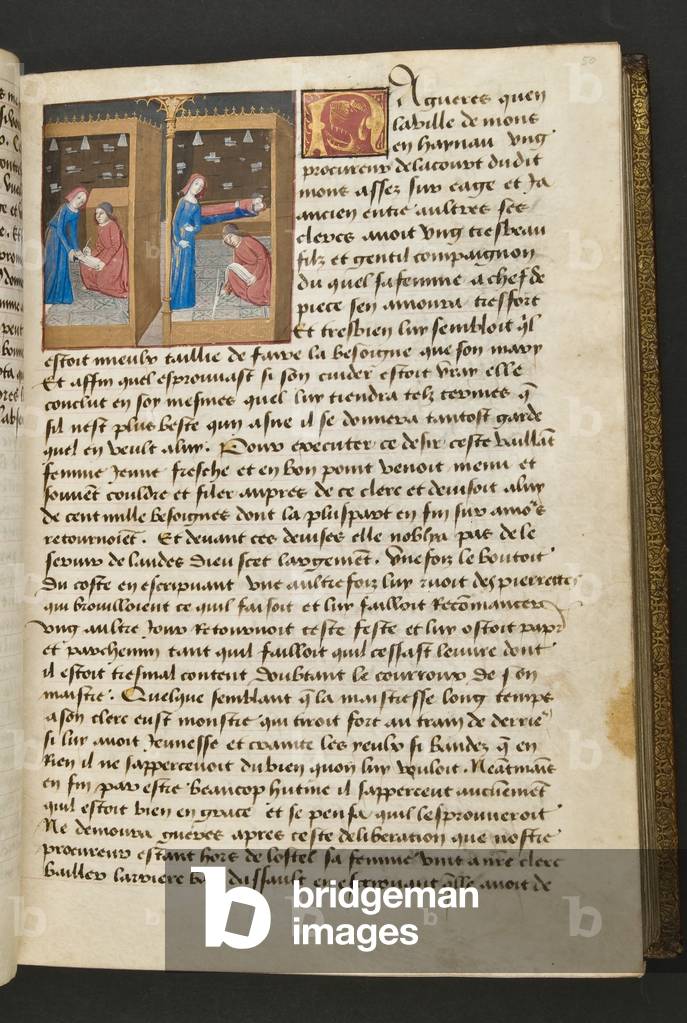 50
Nagueres quen
la ville de mons
en haynau vng
procureur de la court dudit
mons assez sur eage et Ja
ancien entre aultres ses
clercs auoit vng tresbeau
filz et gentil compaignon
du quel sa femme a chef de
piece sen amoura tresfort
Et tresbien luy sembloit ql
estoit mieulx taillie de faire la besoigne que son mary
Et affin quel esprouuast si son cuider estoit vray elle
conclut en soy mesmes quel luy tiendra telz termes q
sil nest plus beste qun asne il se donnera tantost garde
quel en veult a luy. Pour executer ce desir ceste vaillāt
femme Jeune fresche et en bon point venoit menu et
souuēt couldre et filer aupres de ce clerc et deuisoit a luy
de cent mille besoignes dont la pluspart en fin sur amos
retournoiēt. Et deuant ces deuises elle noblya pas de le
seruir de laudes dieu scet largement. Vne foiz le boutoit
du coste en escripuant vne aultre foiz luy ruoit des pierrettes
qui brouilloient ce quil faisoit et luy failloit Recōmancer
vng aultre Jour Retournoit ceste feste et luy ostoit papr
et parchemin tant quil failloit quil cessast leuure dont
il estoit tresmal content doubtant le courroux de son
maistre. Quelque semblant q la maistresse long temps
a son clerc eust monstre qui tiroit fort au train de derrie
si luy auoit Jeunesse et crainte les yeulx si bandez q en
Rien il ne sappercenoit du bien quon luy vouloit. Neātmāīs
en fin par estre beaucop hutine il sappercent aucūemēt
quil estoit bien en grace et se pensa quil lesprouueroit
Ne demoura gueres apres ceste deliberation que nostre
procureur estant hors de lostel sa femme vint a nre clerc
bailler dassault qlle auoit de
bridgeman
images